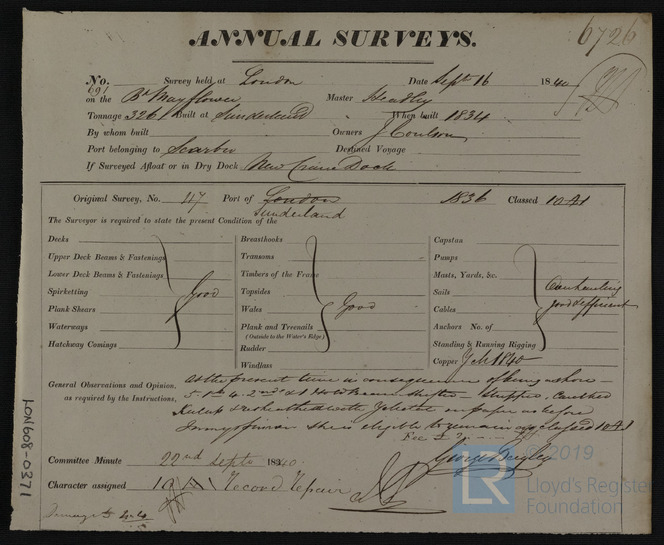 6726
ANNUAL SURVEYS.
No. 691 Survey held at London Date Septr 16 1840
on the Br Mayflower Master Headley
Tonnage 326 Built at Sunderland When built 1834
By whom built Owners J Coulson
Port belonging to Scarbro Destined Voyage
If Surveyed Afloat or in Dry Dock New Crane Dock
Original Survey, No. 117 Port of London Sunderland 1836 Classed 10 A1
The Surveyor is required to state the present Condition of the
Decks
Upper Deck Beams & Fastenings
Lower Deck Beams & Fastenings
Spirketting
Plank Shears
Waterways
Hatchway Comings
Good
Breasthooks
Transoms
Timbers of the Frame
Topsides
Wales
Plank and Treenails
(Outside to the Water's Edge)
Rudder
Windlass
Good
Capstan
Pumps
Masts, Yards, &c.
Sails
Cables
Anchors No. of
Standing & Running Rigging
Copper Feb 1840
Overhauling
good & efficient
General Observations and Opinion,
as required by the Instructions,
At the present time in consequence of being ashore
shifted - Stripped, Caulked
on paper as before
In my opinion she is eligible to remain as classed 10 A1
Fee £
George Bayley
Committee Minute 22nd Septr 1840
Character assigned 10 A1 Record Repair
LON608-0371
© 2019
LR
Lloyd's Register
Foundation